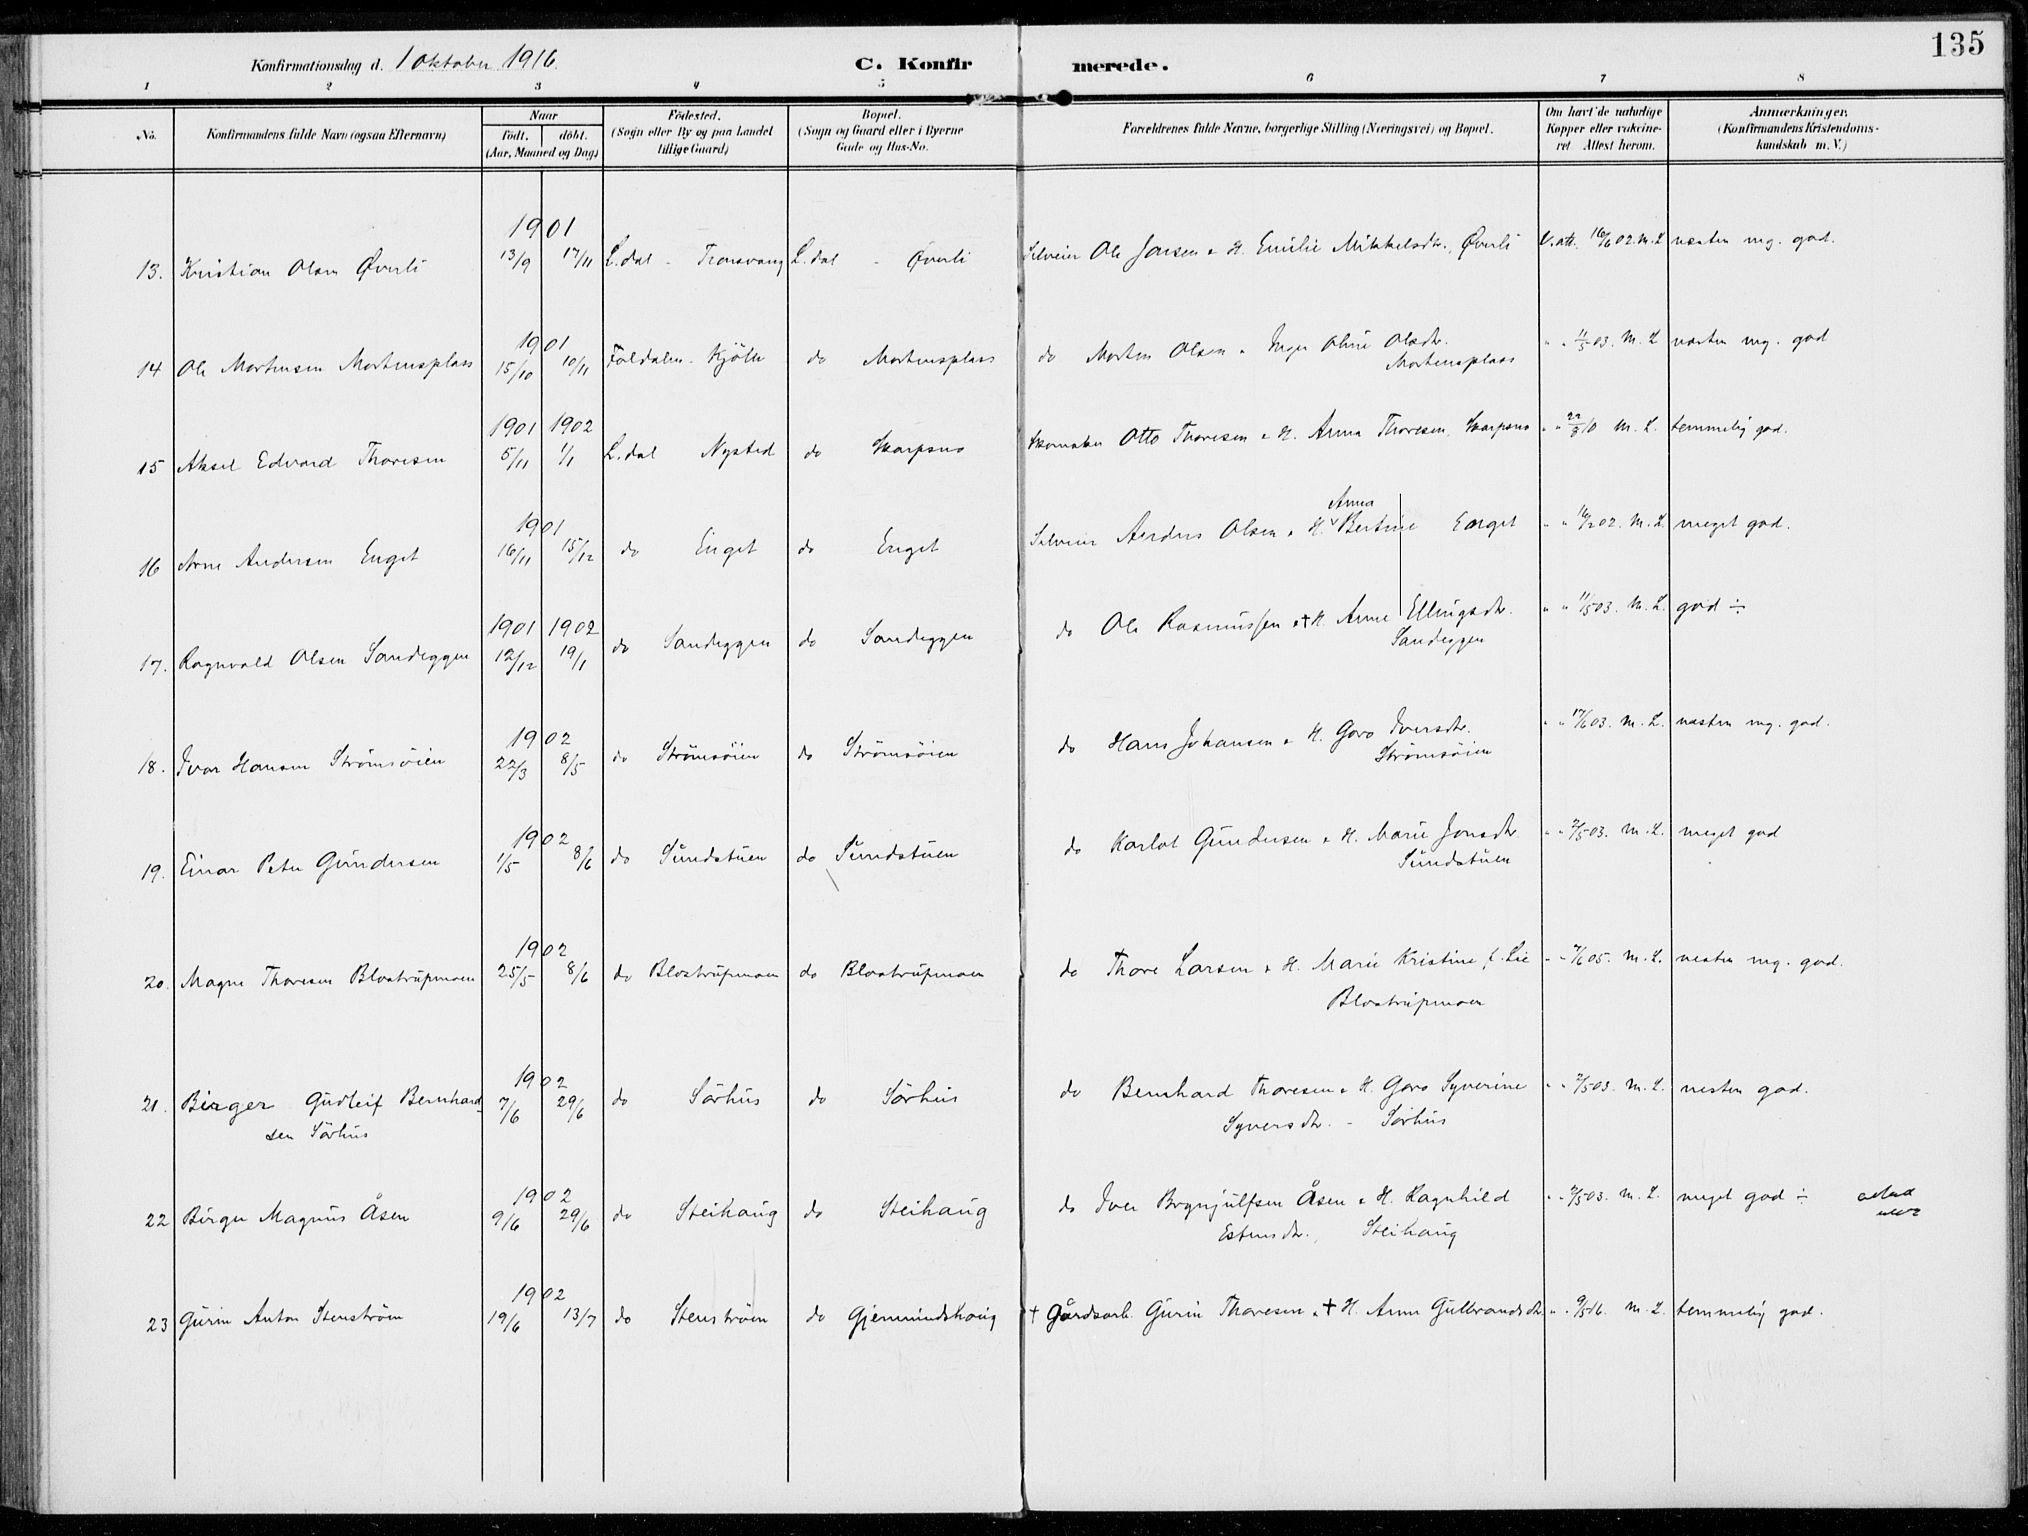 135
Konfirmationsdag d. 1 Oktober 1916. C. Konfirmerede.
1 2 3 4 5 6 7 8
No. Konfirmandens fulde Navn (ogsaa Efternavn) Naar födt. döbt. (Aar, Maaned og Dag) Födested. (Sogn eller By og paa Landet tillige Gaard) Bopæl. (Sogn og Gaard eller i Byerne Gade og Hus-No. Forældrenes fulde Navne, borgerlige Stilling (Næringsvei) og Bopæl. Om havt de naturlige Kopper eller vakcineret Attest herom. Anmærkninger. (Konfirmandens Kristendomskundskab m.V.)
1901
13. Kristian Olsen Øverli 13/9 17/11 L.dal - Tronsvang L.dal - Øverli Selveier Ole Jonsen & H. Emilie Mikkelsdtr., Øverli V.att. 16/6 02. M.L. næsten mg. god.
1901
14 Ole Mortensen Mortensplass 15/10 10/11 Foldalen - Kjölle do Mortensplass do Morten Olsen & Inger Oline Olsdtr. " " 11/5 03. M.L næsten mg. god
Mortensplass
1901 1902
15 Aksel Edvard Thoresen 5/11 1/1 L.dal Nysted do Skarpsno Skomaker Otto Thoresen & H. Anna Thoresen, Skarpsno " " 22/3 10 M.L. temmelig god.
Anna
1901
16 Arne Andersen Enget 16/11 15/12 do Enget do Enget Selveier Anders Olsen & H. Bertine Enget " " 16/2 02. M.L. meget god.
1901 1902
17. Ragnvald Olsen Sandeggen 12/12 19/1 do Sandeggen do Sandeggen do Ole Rasmussen & † H. Anne Ellingsdtr. " " 11/5 03. M.L. god ÷
Sandeggen
1902
18. Ivar Hansen Strømsøien 22/3 8/5 do Strømsøien do Strømsøien do Hans Johansen & H. Goro Iversdtr. " " 17/6 03. M.L. næsten mg. god.
Strømsøien
1902
19. Einar Peter Gundersen 1/5 8/6 do Sundstuen do Sundstuen do Karlot Gundersen & H. Marie Jonsdtr. " " 2/5 03. M.L. meget god
Sundstuen
1902
20. Magne Thoresen Blostrupmoen 25/5 8/6 do Blostrupmoen do Blostrupmoen do Thore Larsen & H. Marie Kristine f. Lie " " 7/6 05. M.L. nesten mg. god.
Blostrupmoen
1902
21. Birger Gudleif Bernhard- 7/6 29/6 do Sörhus do Sörhus do Bernhard Thoresen & H. Goro Syverine " " 2/5 03. M.L. nesten god.
sen Sörhus Syversdtr. - Sörhus
1902
22 Birger Magnus Åsen 9/6 29/6 do Steihaug do Steihaug do Iver Brynjulfsen Åsen & H. Ragnhild " " 2/5 03. M.L. meget god ÷
Estensdtr., Steihaug
1902
23 Gurin Anton Stenstrøen 19/6 13/7 do Stenstrøen do Gjermundshaug † Gårdsarb. Gurin Thoresen & † H. Anne Gulbrandsdtr. " " 9/5 06. M.L. temmelig god.